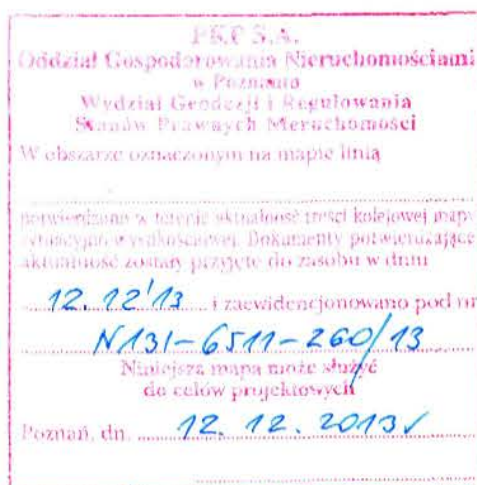 PKP S.A.
Oddział Gospodarowania Nieruchomościami
w Poznaniu
Wydział Geodezji i Regulowania
Stanów Prawnych Nieruchomości
W obszarze oznaczonym na mapie linią
potwierdzono w terenie aktualność treści kolejowej mapy
sytuacyjno wysokościowej. Dokumenty potwierdzające
aktualność zostały przyjęte do zasobu w dniu
12.12'13 i zaewidencjonowano pod nr
N131-6511-260/13
Niniejsza mapa może służyć
do celów projektowych
Poznań, dn. 12. 12. 2013